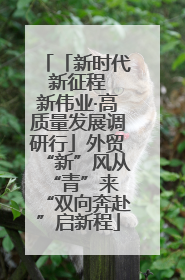 「「新时代
新征程
新伟业·高
质量发展调
研行」外贸
“新”风从
“青”来
“双向奔赴
”启新程」